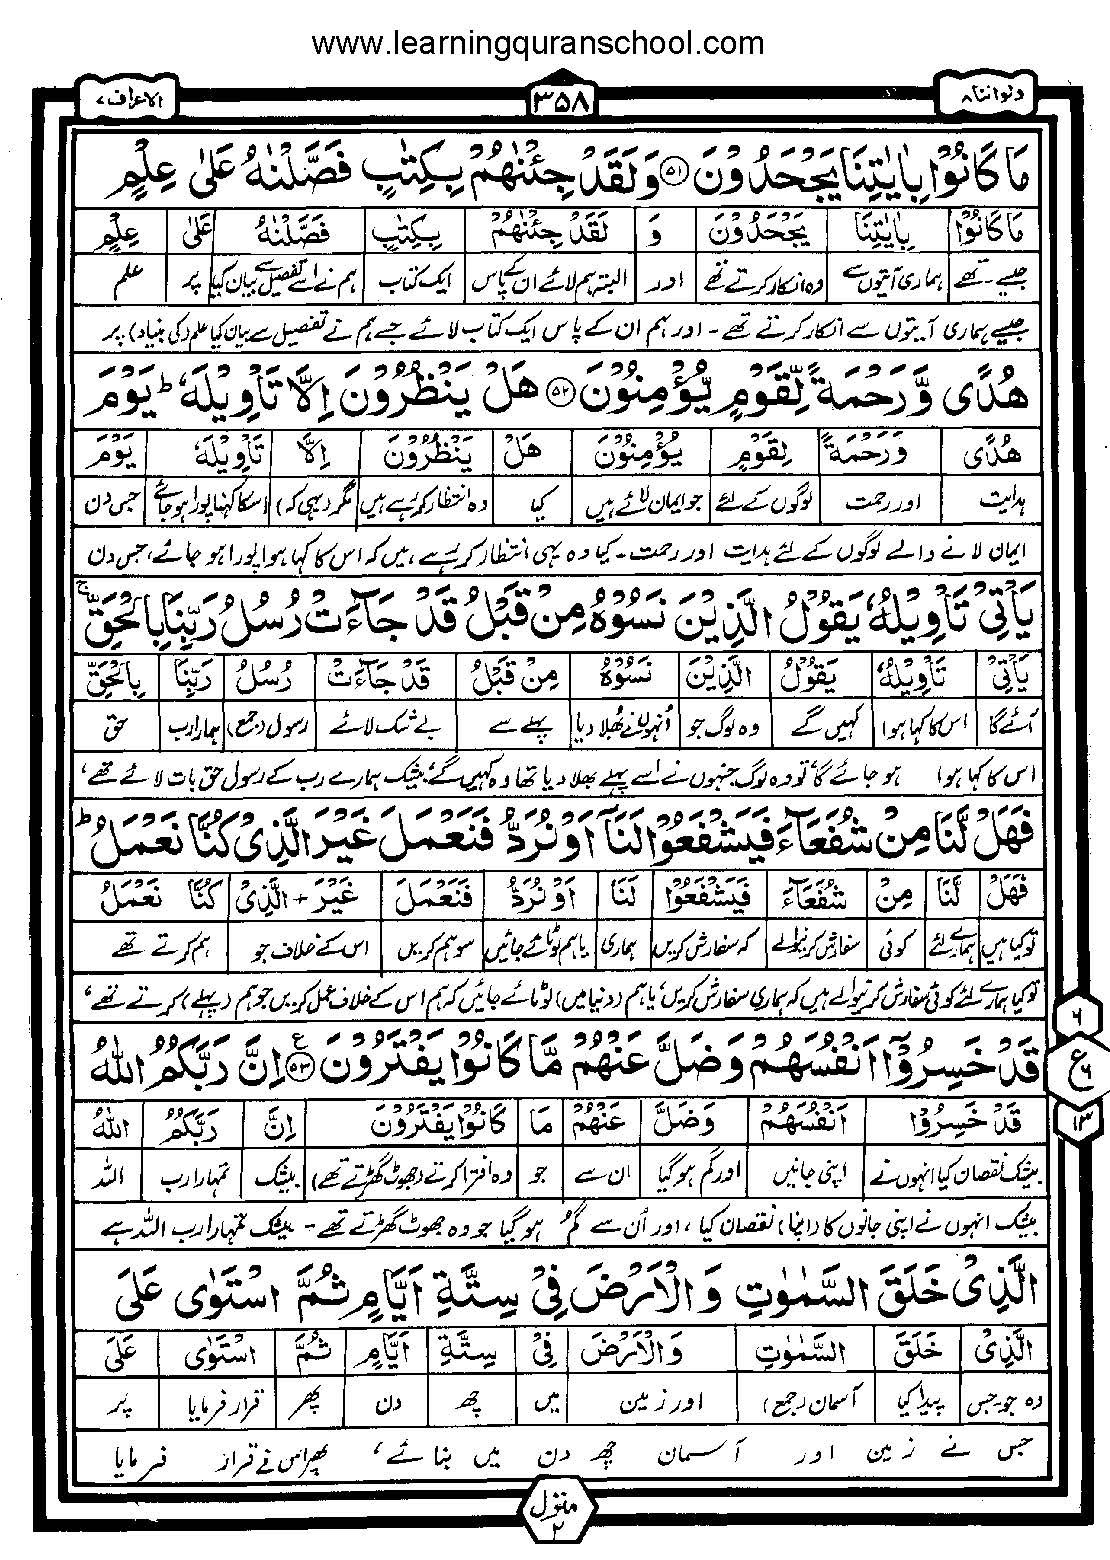 www.learningquranschool.com
ولواننا ۸ ۳۵۸ الاعراف ۷
مَا كَانُوْا بِاٰيٰتِنَا يَجْحَدُوْنَ ﴿۵۱﴾ وَلَقَدْ جِئْنٰهُمْ بِكِتٰبٍ فَصَّلْنٰهُ عَلٰى عِلْمٍ
مَا كَانُوْا بِاٰيٰتِنَا يَجْحَدُوْنَ وَ لَقَدْ جِئْنٰهُمْ بِكِتٰبٍ فَصَّلْنٰهُ عَلٰى عِلْمٍ
جیسے - تھے ہماری آیتوں سے وہ انکار کرتے تھے اور البتہ ہم لائے ان کے پاس ایک کتاب ہم نے اسے تفصیل سے بیان کیا پر علم
جیسے ہماری آیتوں سے انکار کرتے تھے - اور ہم ان کے پاس ایک کتاب لائے جسے ہم نے تفصیل سے بیان کیا علم (کی بنیاد) پر
هُدًى وَّرَحْمَةً لِّقَوْمٍ يُّؤْمِنُوْنَ ﴿۵۲﴾ هَلْ يَنْظُرُوْنَ اِلَّا تَاْوِيْلَهٗ ؕ يَوْمَ
هُدًى وَّرَحْمَةً لِقَوْمٍ يُؤْمِنُوْنَ هَلْ يَنْظُرُوْنَ اِلَّا تَاْوِيْلَهٗ يَوْمَ
ہدایت اور رحمت لوگوں کے لئے جو ایمان لائے ہیں کیا وہ انتظار کررہے ہیں مگر (یہی کہ) اسکا کہنا پورا ہوجائے جس دن
ایمان لانے والے لوگوں کے لئے ہدایت اور رحمت - کیا وہ یہی انتظار کررہے ہیں کہ اس کا کہا ہوا پورا ہو جائے، جس دن
يَاْتِيْ تَاْوِيْلُهٗ يَقُوْلُ الَّذِيْنَ نَسُوْهُ مِنْ قَبْلُ قَدْ جَآءَتْ رُسُلُ رَبِّنَا بِالْحَقِّ ۚ
يَاْتِيْ تَاْوِيْلُهٗ يَقُوْلُ الَّذِيْنَ نَسُوْهُ مِنْ قَبْلُ قَدْ جَآءَتْ رُسُلُ رَبِّنَا بِالْحَقِّ
آئے گا اس کا کہا ہوا کہیں گے وہ لوگ جو اُنہوں نے بھلا دیا پہلے سے بے شک لائے رسول (جمع) ہمارا رب حق
اس کا کہا ہوا ہو جائے گا تو وہ لوگ جنہوں نے اسے پہلے بھلا دیا تھا وہ کہیں گے، بیشک ہمارے رب کے رسول حق بات لائے تھے،
فَهَلْ لَّنَا مِنْ شُفَعَآءَ فَيَشْفَعُوْا لَنَاۤ اَوْ نُرَدُّ فَنَعْمَلَ غَيْرَ الَّذِىْ كُنَّا نَعْمَلُ ؕ
فَهَلْ لَّنَا مِنْ شُفَعَآءَ فَيَشْفَعُوْا لَنَا اَوْ نُرَدُّ فَنَعْمَلَ غَيْرَ + الَّذِىْ كُنَّا نَعْمَلُ
تو کیا ہیں ہمارے لئے کوئی سفارش کرنیوالے کہ سفارش کریں ہماری یا ہم لوٹائے جائیں سو ہم کریں اس کے خلاف جو ہم کرتے تھے
تو کیا ہمارے لئے کوئی سفارش کرنیوالے ہیں کہ ہماری سفارش کریں، یا ہم (دنیا میں) لوٹائے جائیں کہ ہم اس کے خلاف عمل کریں جو ہم (پہلے) کرتے تھے،
قَدْ خَسِرُوْۤا اَنْفُسَهُمْ وَضَلَّ عَنْهُمْ مَّا كَانُوْا يَفْتَرُوْنَ ﴿۵۳﴾ ع اِنَّ رَبَّكُمُ اللّٰهُ
۶ ع ۶ ۱۳
قَدْ خَسِرُوْا اَنْفُسَهُمْ وَضَلَّ عَنْهُمْ مَا كَانُوْا يَفْتَرُوْنَ اِنَّ رَبَّكُمُ اللّٰهُ
بیشک نقصان کیا انہوں نے اپنی جانیں اور گم ہو گیا ان سے جو وہ افترا کرتے (جھوٹ گھڑتے تھے) بیشک تمہارا رب اللہ
بیشک انہوں نے اپنی جانوں کا (اپنا) نقصان کیا، اور اُن سے گم ہو گیا جو وہ جھوٹ گھڑتے تھے - بیشک تمہارا رب اللہ ہے
الَّذِىْ خَلَقَ السَّمٰوٰتِ وَالْاَرْضَ فِىْ سِتَّةِ اَيَّامٍ ثُمَّ اسْتَوٰى عَلَى
الَّذِىْ خَلَقَ السَّمٰوٰتِ وَالْاَرْضَ فِىْ سِتَّةِ اَيَّامٍ ثُمَّ اسْتَوٰى عَلَى
وہ جو-جس پیدا کیا آسمان (جمع) اور زمین میں چھ دن پھر قرار فرمایا پر
جس نے زمین اور آسمان چھ دن میں بنائے، پھر اس نے قرار فرمایا
منزل ۲